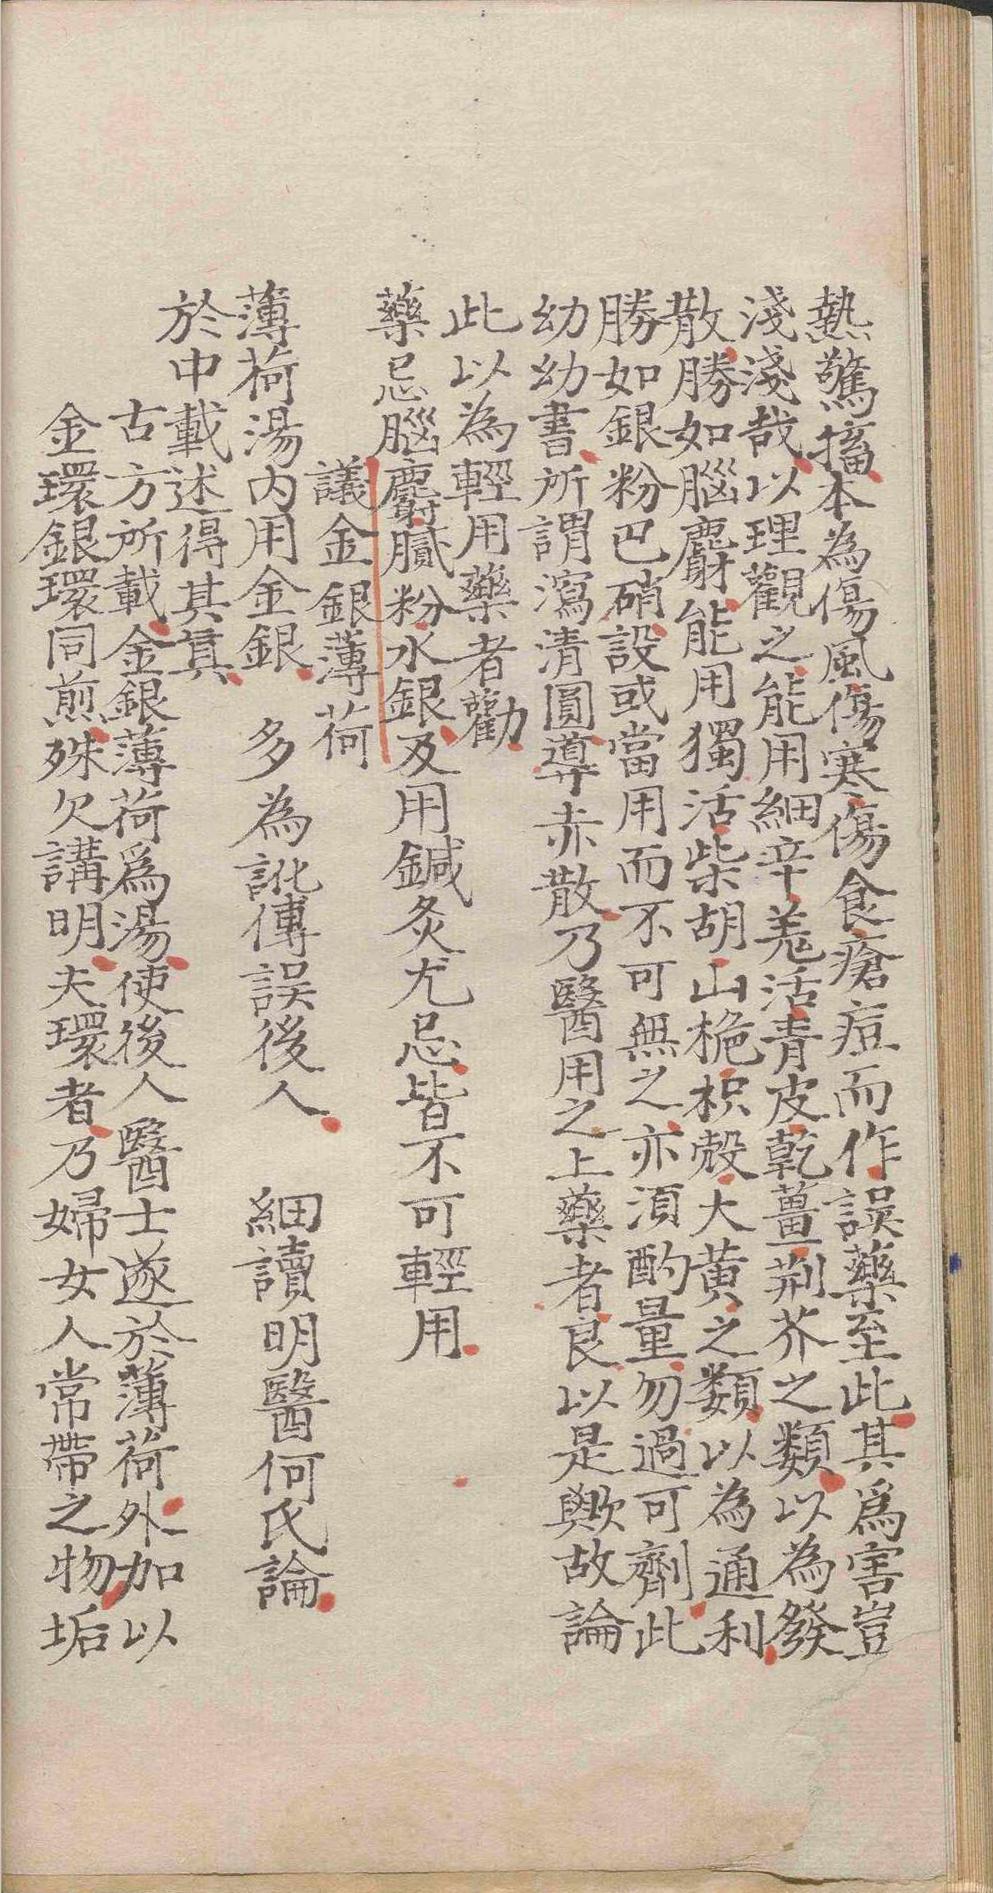 熱驚搐本為傷風傷寒傷食瘡痘而作誤藥至此其爲害豈
淺淺哉以理觀之能用細辛羗活青皮乾薑荆芥之類以為發
散勝如腦麝能用獨活柴胡山梔枳殼大黄之類以為通利
勝如銀粉巴硝設或當用而不可無之亦湏酌量勿過可劑此
幼幼書所謂瀉清圓導赤散乃醫用之上藥者良以是歟故論
此以為輕用藥者勸
藥忌腦麝膩粉水銀及用鍼灸尤忌皆不可輕用
議金銀薄荷
薄荷湯内用金銀 多為訛傳誤後人 細讀明醫何氏論
於中載述得其真
古方所載金銀薄荷爲湯使後人醫士遂於薄荷外加以
金環銀環同煎殊欠講明夫環者乃婦女人常帶之物垢